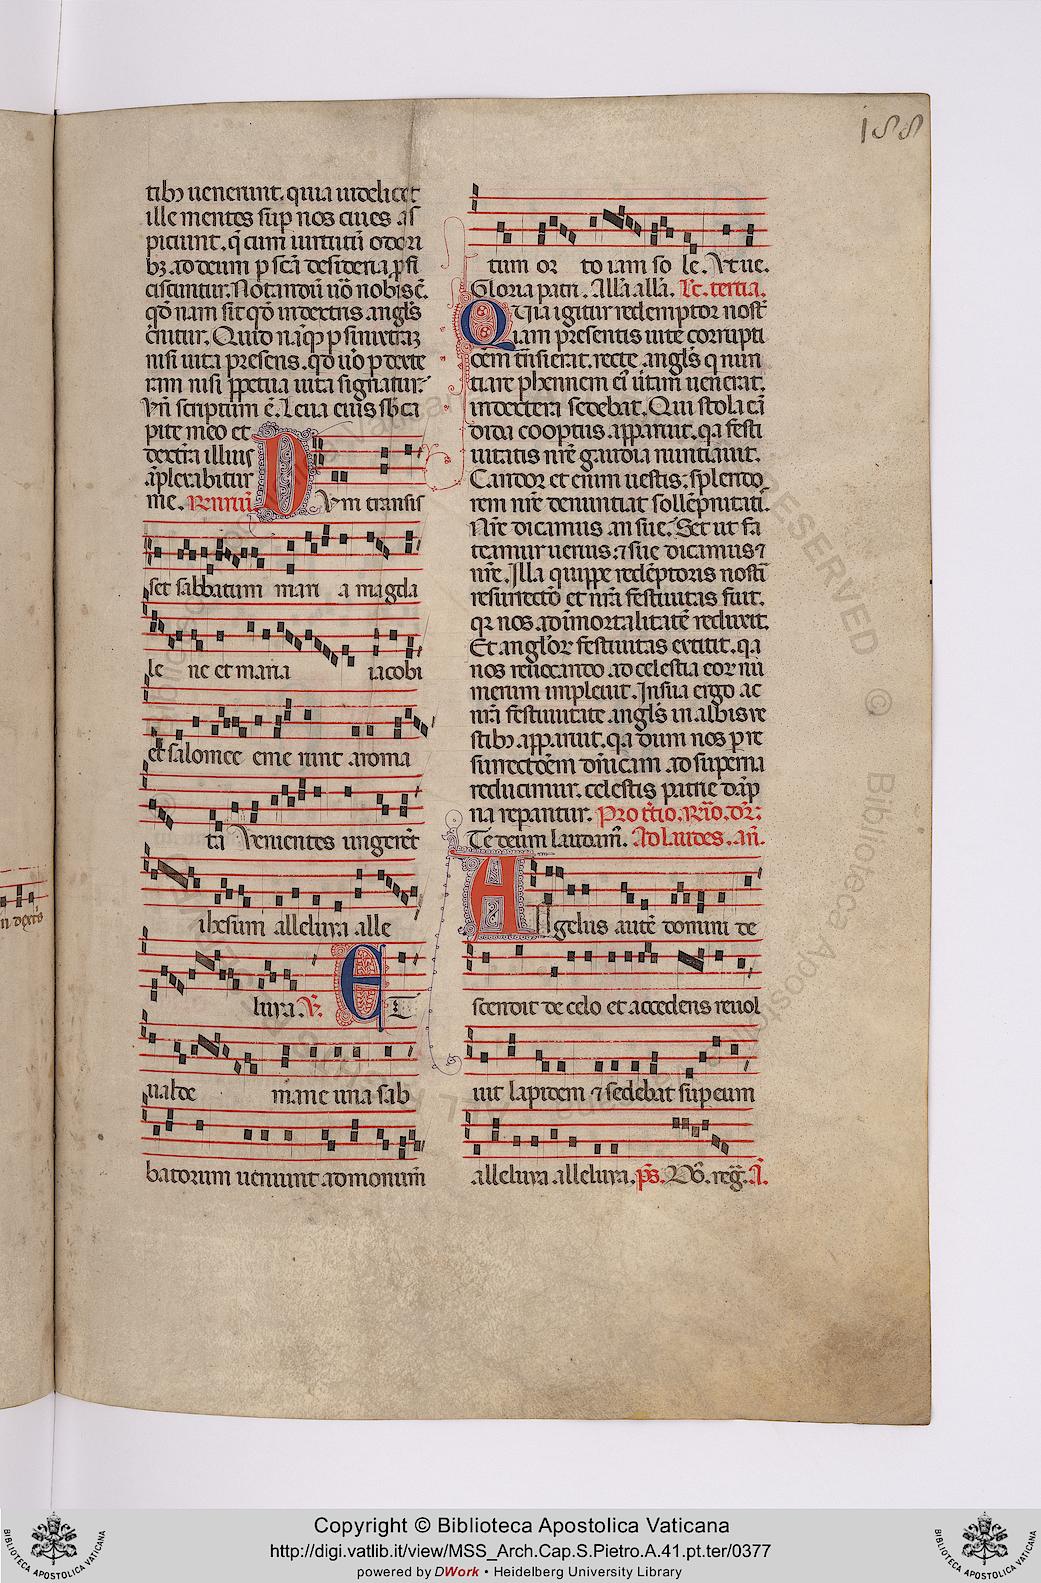 188
tibꝫ uenerunt. quia uidelicet
ille mentes sup nos ciues as
piciunt. q̄ cum uirtutū odori
bꝫ. ad deum p scā desideria pfi
ciscuntur. Notandū uō nobis ē.
qd̄ nam sit qd̄ in dextris angls̄
c̄nitur. Quid naq̄ p sinixtraꝫ
nisi uita presens. qd̄ uō p dexte
ram nisi ppetua uita signatur
Vn̄ scriptum ē. Leua eius sb ca
pite meo et
dextra illius
āplexabitur
me. Rm̄ıı
Vm transis
set sabbatum mari a magda
le ne et maria iacobi
et salomee eme runt aroma
ta Venientes ungerēt
ihesum alleluya alle
luya. V̄. Et
ualde mane una sab
batorum ueniunt ad monum̄
tum or to iam so le. Vt ue.
Gloria patri. All̄a all̄a. Lc̄. tertia.
Quia igitur redemptor nostr̄
iam presentis uite corrupti
oēm tn̄sierat. recte angls̄ q nun
tiare phennem ei uitam uenerat.
in dextera sedebat. Qui stola cā
dida cooptus apparuit. qa festi
uitatis nr̄e gaudia nuntiauit.
Candor et enim uestis: splendo
rem nr̄e denuntiat sollēpnitatis.
Nr̄e dicamus an sue. Set ut fa
teamur uerius: ⁊ sue dicamus ⁊
nr̄e. Illa quippe redēptoris nostri
resurrectō et nr̄a festiuitas fuit.
qꝛ nos ad īmortalitatē reduxit.
Et anglor̄ festiuitas extitit. qa
nos reuocando ad celestia eor nu
merum impleuit. In sua ergo ac
nr̄a festiuitate angls̄ in albis ue
stibꝫ apparuit. qa dum nos p re
surrectōem dn̄icam ad superna
reducimur. celestis patrie dāp
na repantur.
Te deum laudam̄. Ad Laudes. an̄.
Angelus autē domini de
scendit de celo et accedens reuol
uit lapidem ⁊ sedebat sup eum
alleluya alleluya. ps̄. Dn̄s. reḡ. A.
in dextris
Copyright © Biblioteca Apostolica Vaticana
http://digi.vatlib.it/view/MSS_Arch.Cap.S.Pietro.A.41.pt.ter/0377
powered by DWork • Heidelberg University Library
BIBLIOTECA APOSTOLICA VATICANA
BIBLIOTECA APOSTOLICA VATICANA